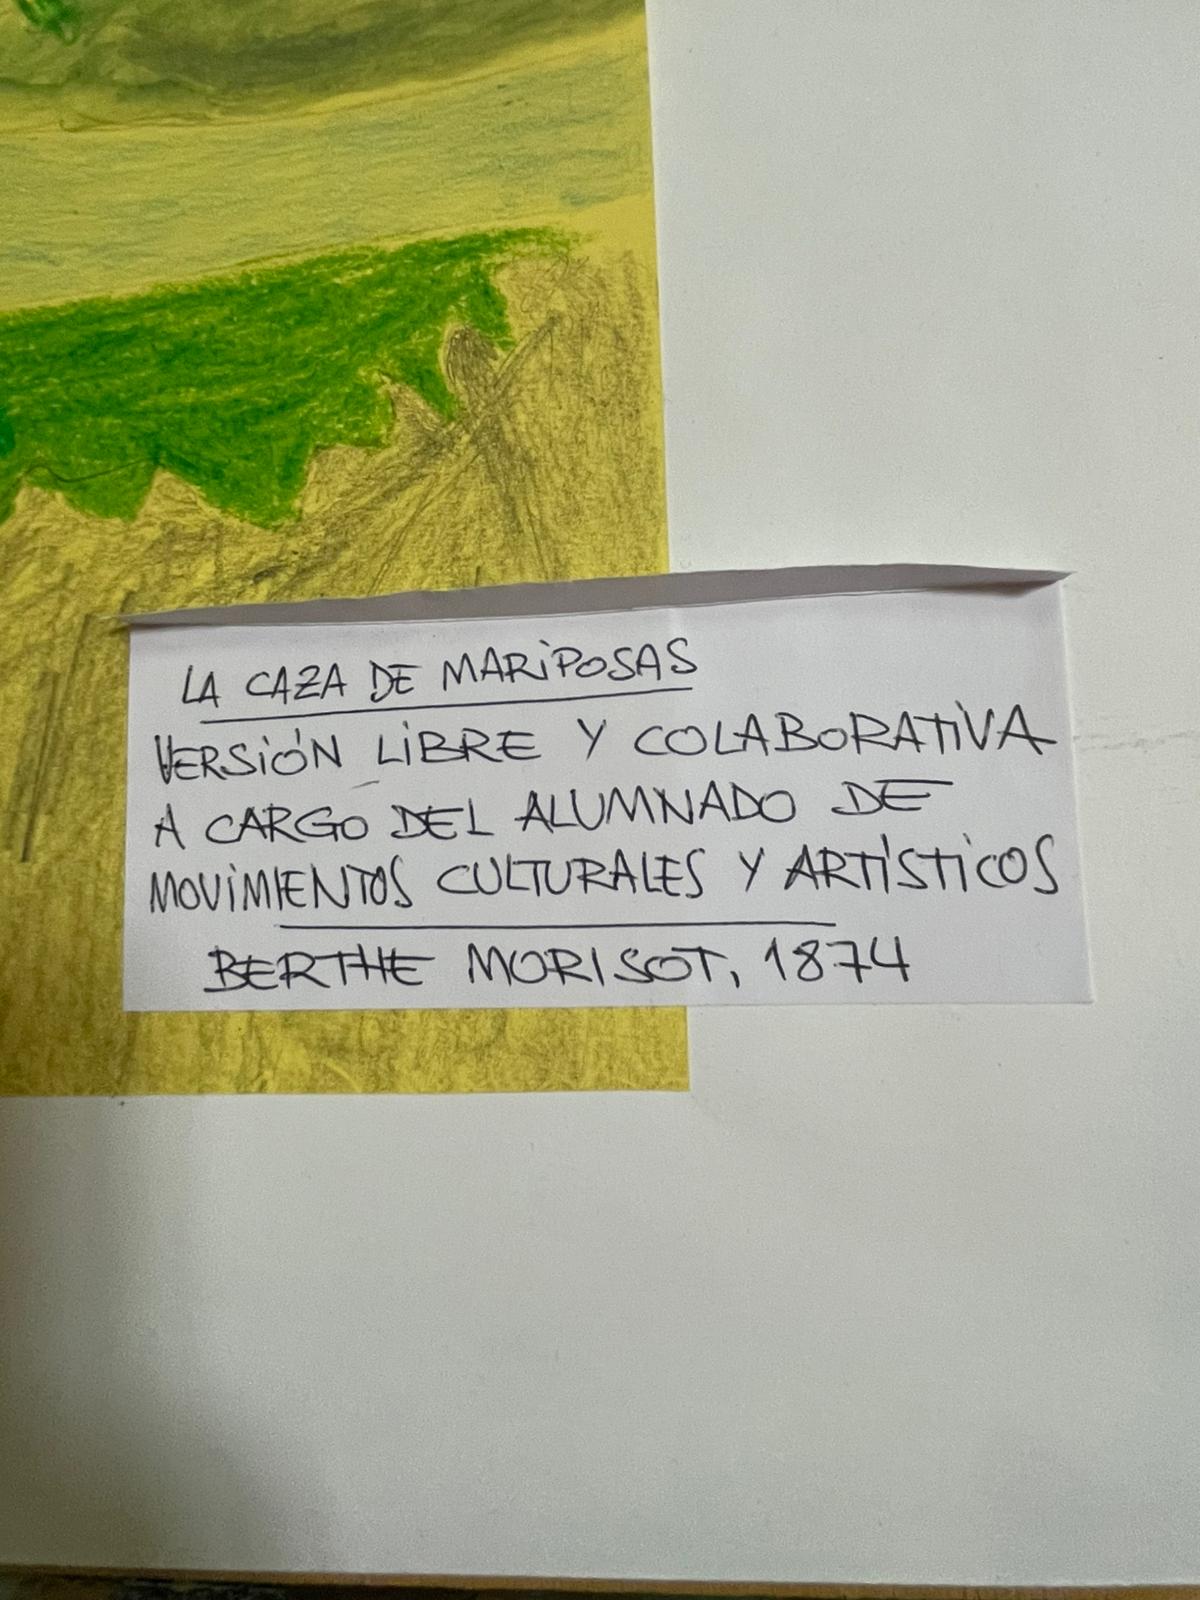 LA CAZA DE MARIPOSAS
VERSIÓN LIBRE Y COLABORATIVA
A CARGO DEL ALUMNADO DE
MOVIMIENTOS CULTURALES Y ARTÍSTICOS
BERTHE MORISOT, 1874